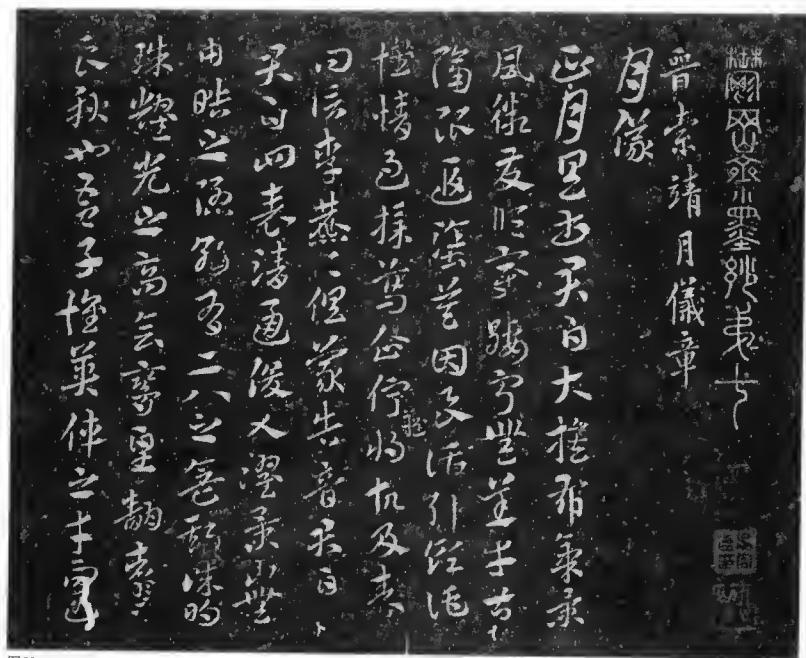 鬱岡齋墨妙第七
晉索靖月儀章
月儀
正月具書君白大蔟布氣景
風微發順變綏寧無恙幸甚
隔限遐塗莫因良話引領託
懷情過採葛企佇難將故及表
問信李麃〻俱蒙告音君白
君白四表清通俊乂濯景山無
由皓之隱朝有二八之盈斯誠明
珠耀光之高會鸞皇翻翥之
良秋也吾子懷英偉之才